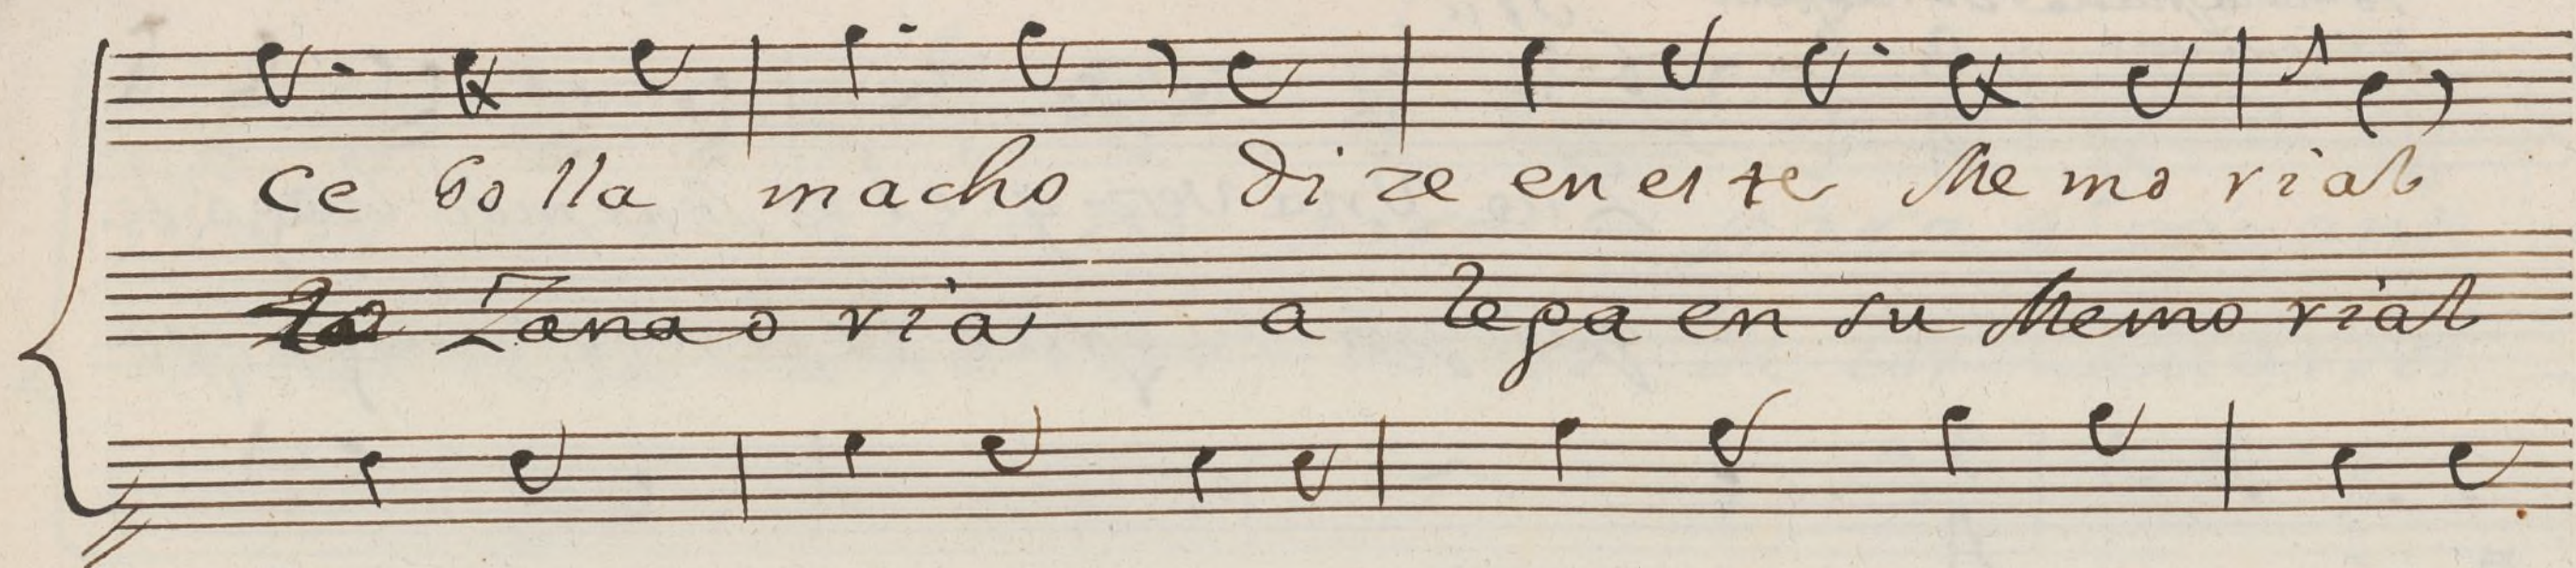 Ce bo lla macho di ze en es te Me mo rial
Zana o ria a lega en su Memo rial